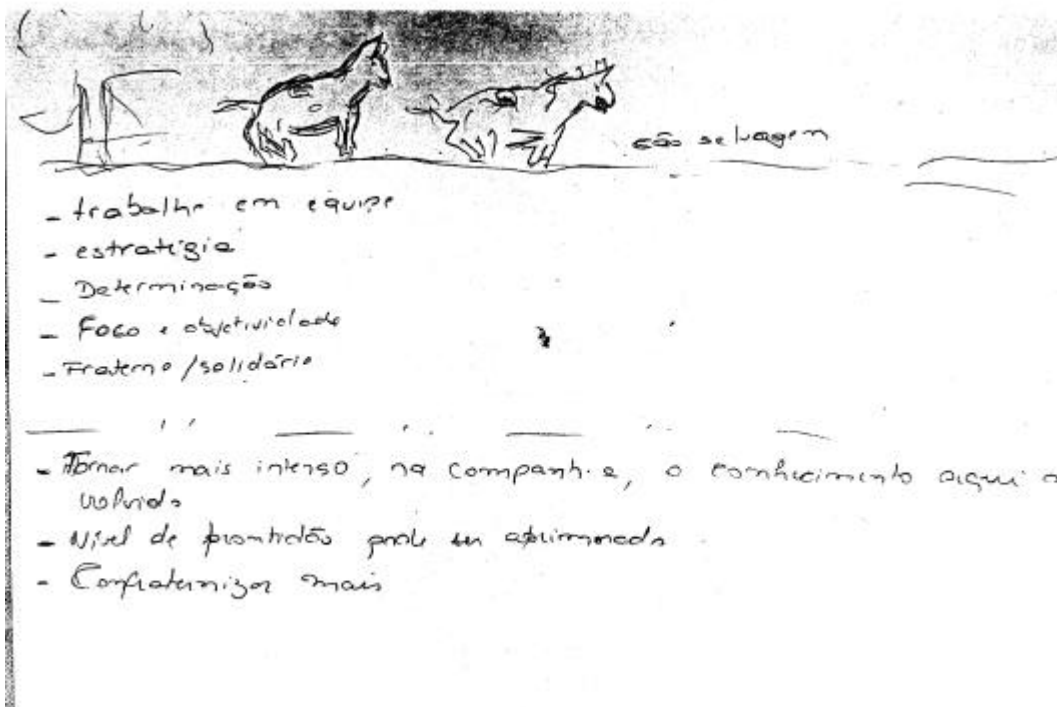 cão selvagem
- trabalho em equipe
- estratégia
- Determinação
- Foco e objetividade
- Fraterno/solidário
- Tornar mais intenso, na companhia, o conhecimento aqui
volvido
- Nível de prontidão pode ser aprimorado
- Confraternizar mais